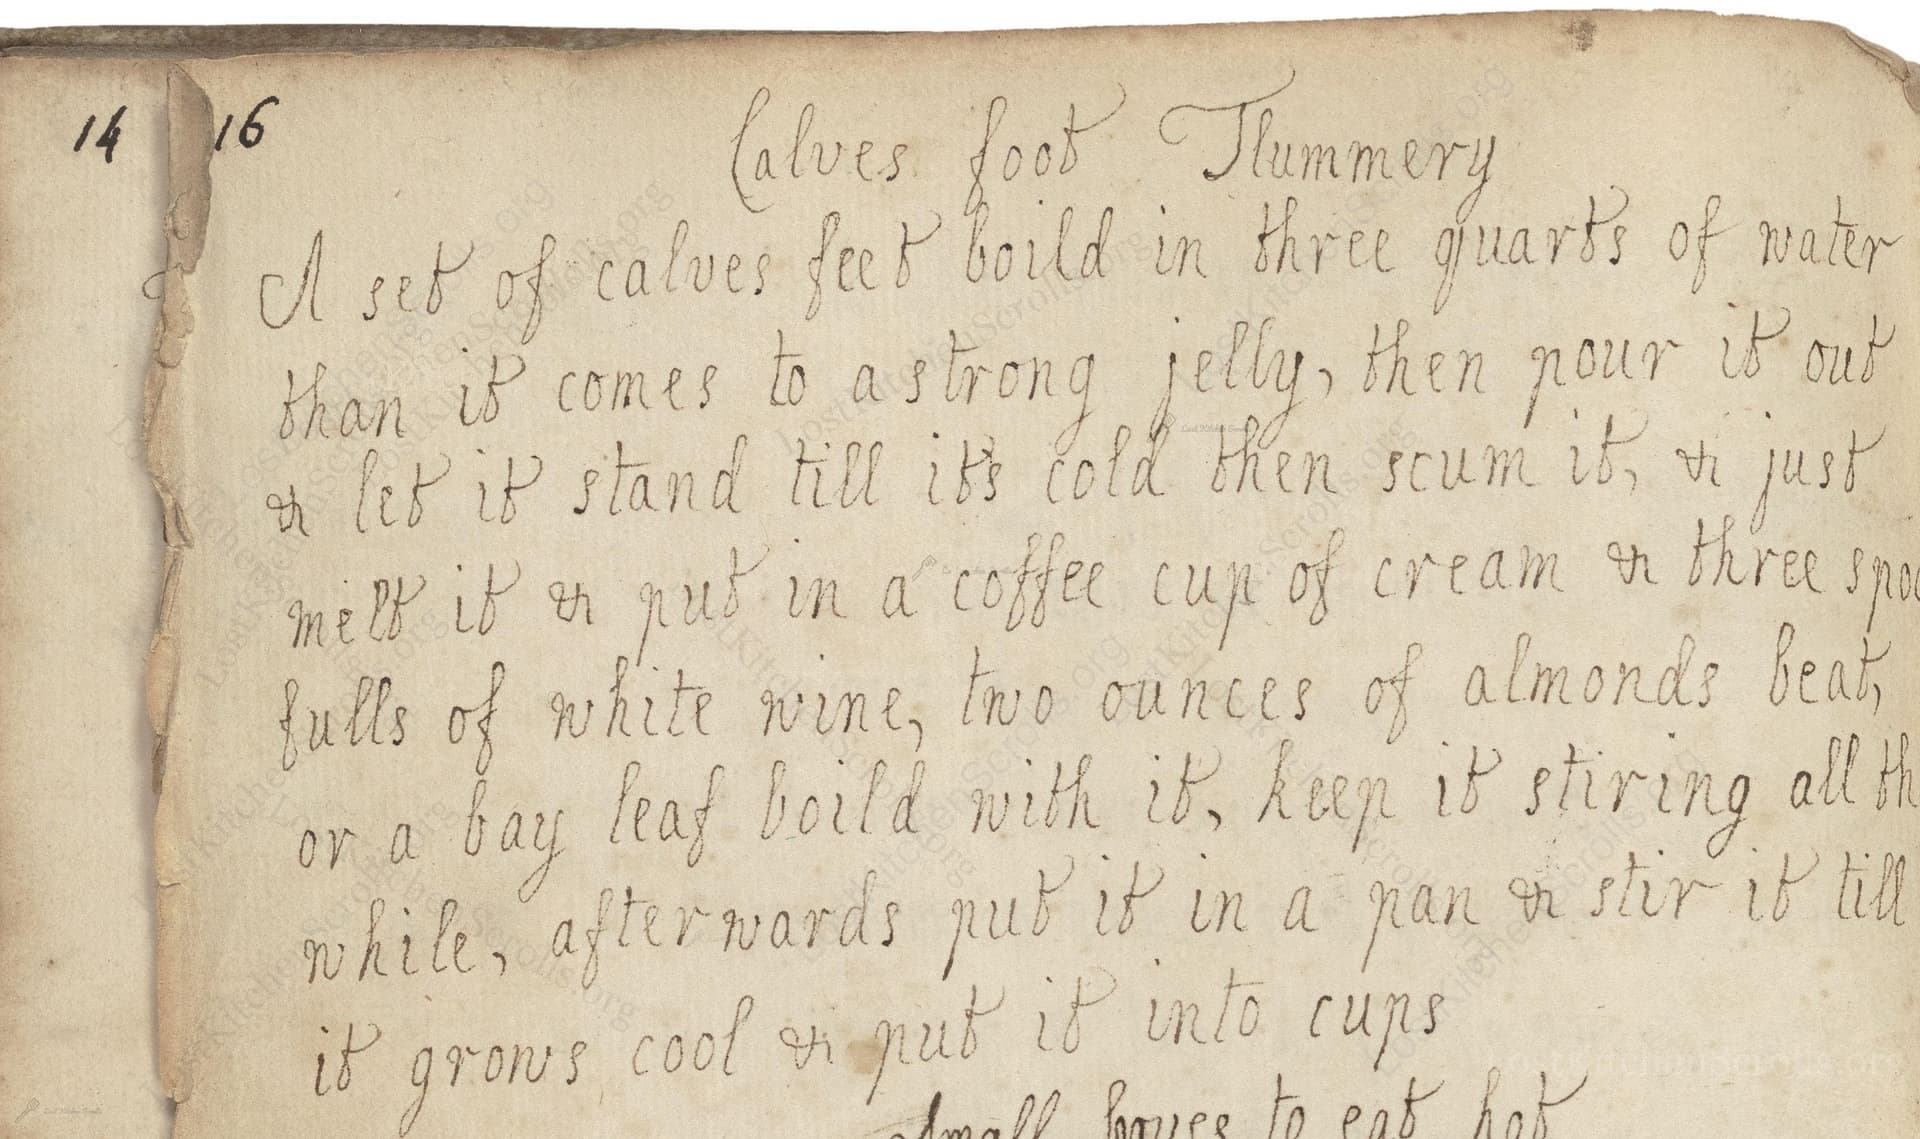 14 16
Calves foot Flummery
A set of calves feet boild in three quarts of water
than it comes to a strong jelly, then pour it out
& let it stand till it's cold then scum it, & just
melt it & put in a coffee cup of cream & three spoo
fulls of white wine, two ounces of almonds beat,
or a bay leaf boild with it, keep it stiring all th
while, afterwards put it in a pan & stir it till
it grows cool & put it into cups
Small to eat hot
LostKitchenScrolls.org